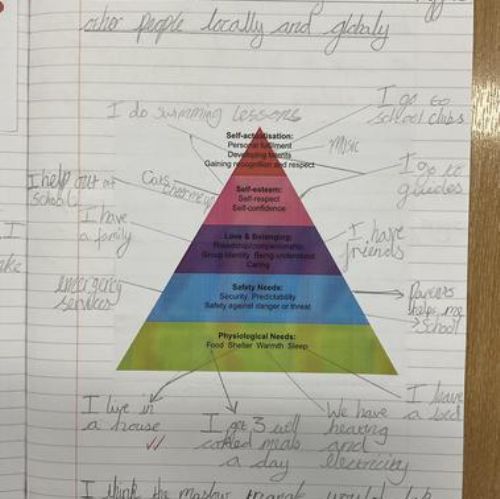 other people locally and globaly
I do swimming lessons
I go to
school clubs
Self-actualisation:
Personal fulfilment
Developing talents
Gaining recognition and respect
music
I go to
guides
I help out at
school
Self-esteem:
Self-respect
Self-confidence
I have
a family
Love & Belonging:
Friendship/companionship
Group identity Being understood
Caring
I have
friends
emergency
services
Safety Needs:
Security, Predictability
Safety against danger or threat
Parents
helps me
school
Physiological Needs:
Food Shelter Warmth Sleep
I live in
a house
I get 3 well
cooked meals
a day
We have
heating
and
electricity
I have
a bed
I think the maslow triangle